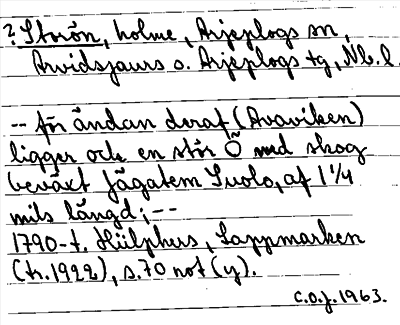 ? Storön, holme, Arjeplogs sn,
Arvidsjaurs o. Arjeplogs tg, Nb. l.
-- för ändan deraf (Avaviken)
ligger ock en stör Ö med skog
beväxt Jägatem Suolo, af 1 1/4
mils längd; --
1790-t. Hülphus, Lappmarken
(tr. 1922), s. 70 not (y).
C.O.J. 1963.